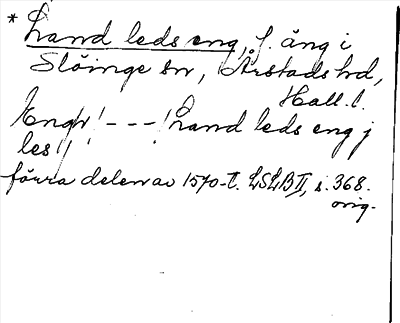 * Land leds eng, f. äng i
Slöinge sn, Årstads hd,
Hall. l.
Engh! - - - ! Land leds eng j
les!!
förra delen av 1570-t. LSLB II, s. 368.
orig.